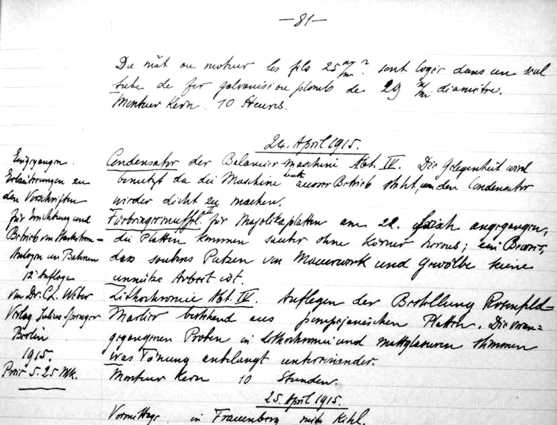 —81—
Du mât au moteur les fils 25 m/m² sont logés dans un seul
tube de fer galvanisé ou plombé de 29 m/m diamètre.
Monteur Kern. 10 Heures.
24. April 1915.
Condensator der Balancier Maschine Abt. IV. Die Gelegenheit wird
benützt da die Maschine ausser Betrieb steht, um den Condensator
wieder dicht zu machen.
für Majolikaplatten am 22. angegangen,
die Platten kommen sauber ohne Körner heraus; ein Beweis,
dass sauberes Putzen von Mauerwerk und Gewölbe keine
unnütze Arbeit ist.
Lithochromie Abt. IV. Auflegen der Bestellung Rosenfeld-
Marlier bestehend aus pompejanischen Platten. Die voran-
gegangenen Proben in Lithochromie und stimmen
was Tönung anbelangt untereinander.
Monteur Kern 10 Stunden.
25. April 1915.
Vormittags in Frauenberg mit Kihl.
Eingegangen
Erläuterungen zu
den Vorschriften
für Errichtung und
Betrieb von Starkstrom-
Anlagen in Bahnen
12 Auflage
von Dr. C. L. Weber
Verlag Julius Springer
Berlin
1915.
Preis 5.25 Mk.